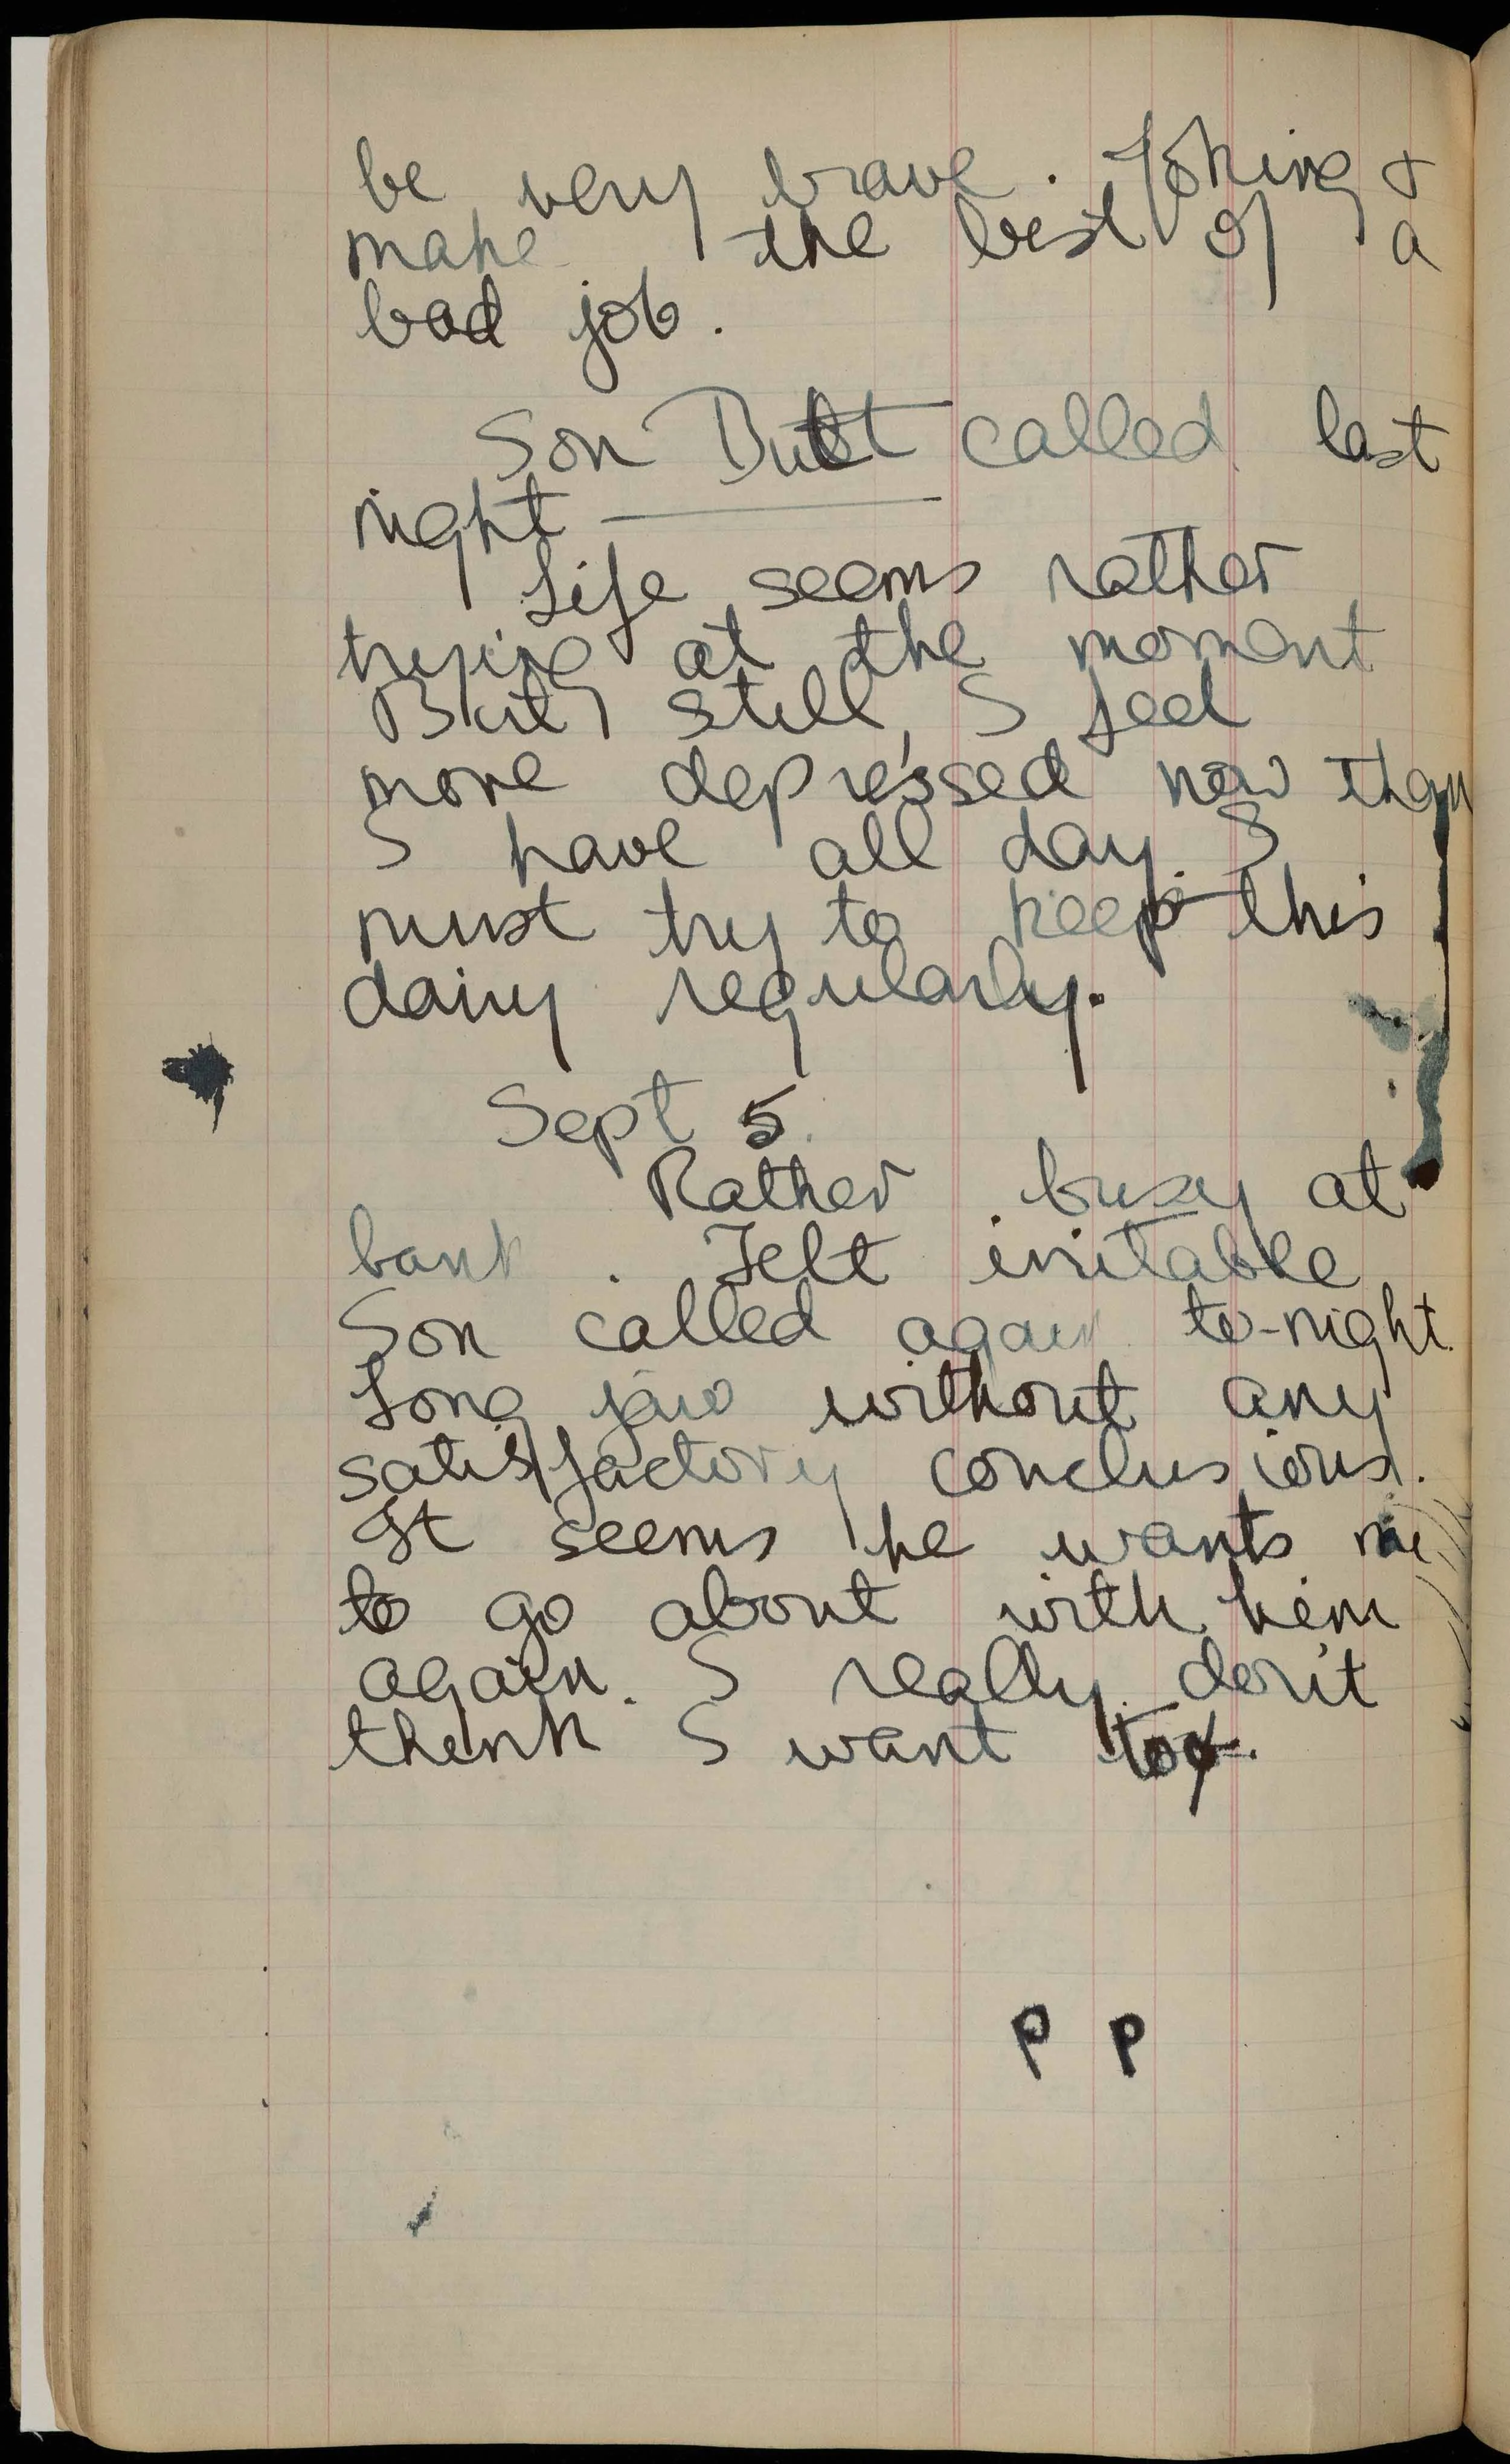 be very brave. Joking &
make the best of a
bad job.
Son Butt called last
night
Life seems rather
trying at the moment
But still, I feel
more depressed now than
I have all day. I
must try to keep this
dairy regularly.
Sept 5.
Rather busy at
bank. Felt irritable
Son called again to-night.
Long jaw without any
satisfactory conclusions.
It seems he wants me
to go about with him
again. I really don't
think I want to.
P P